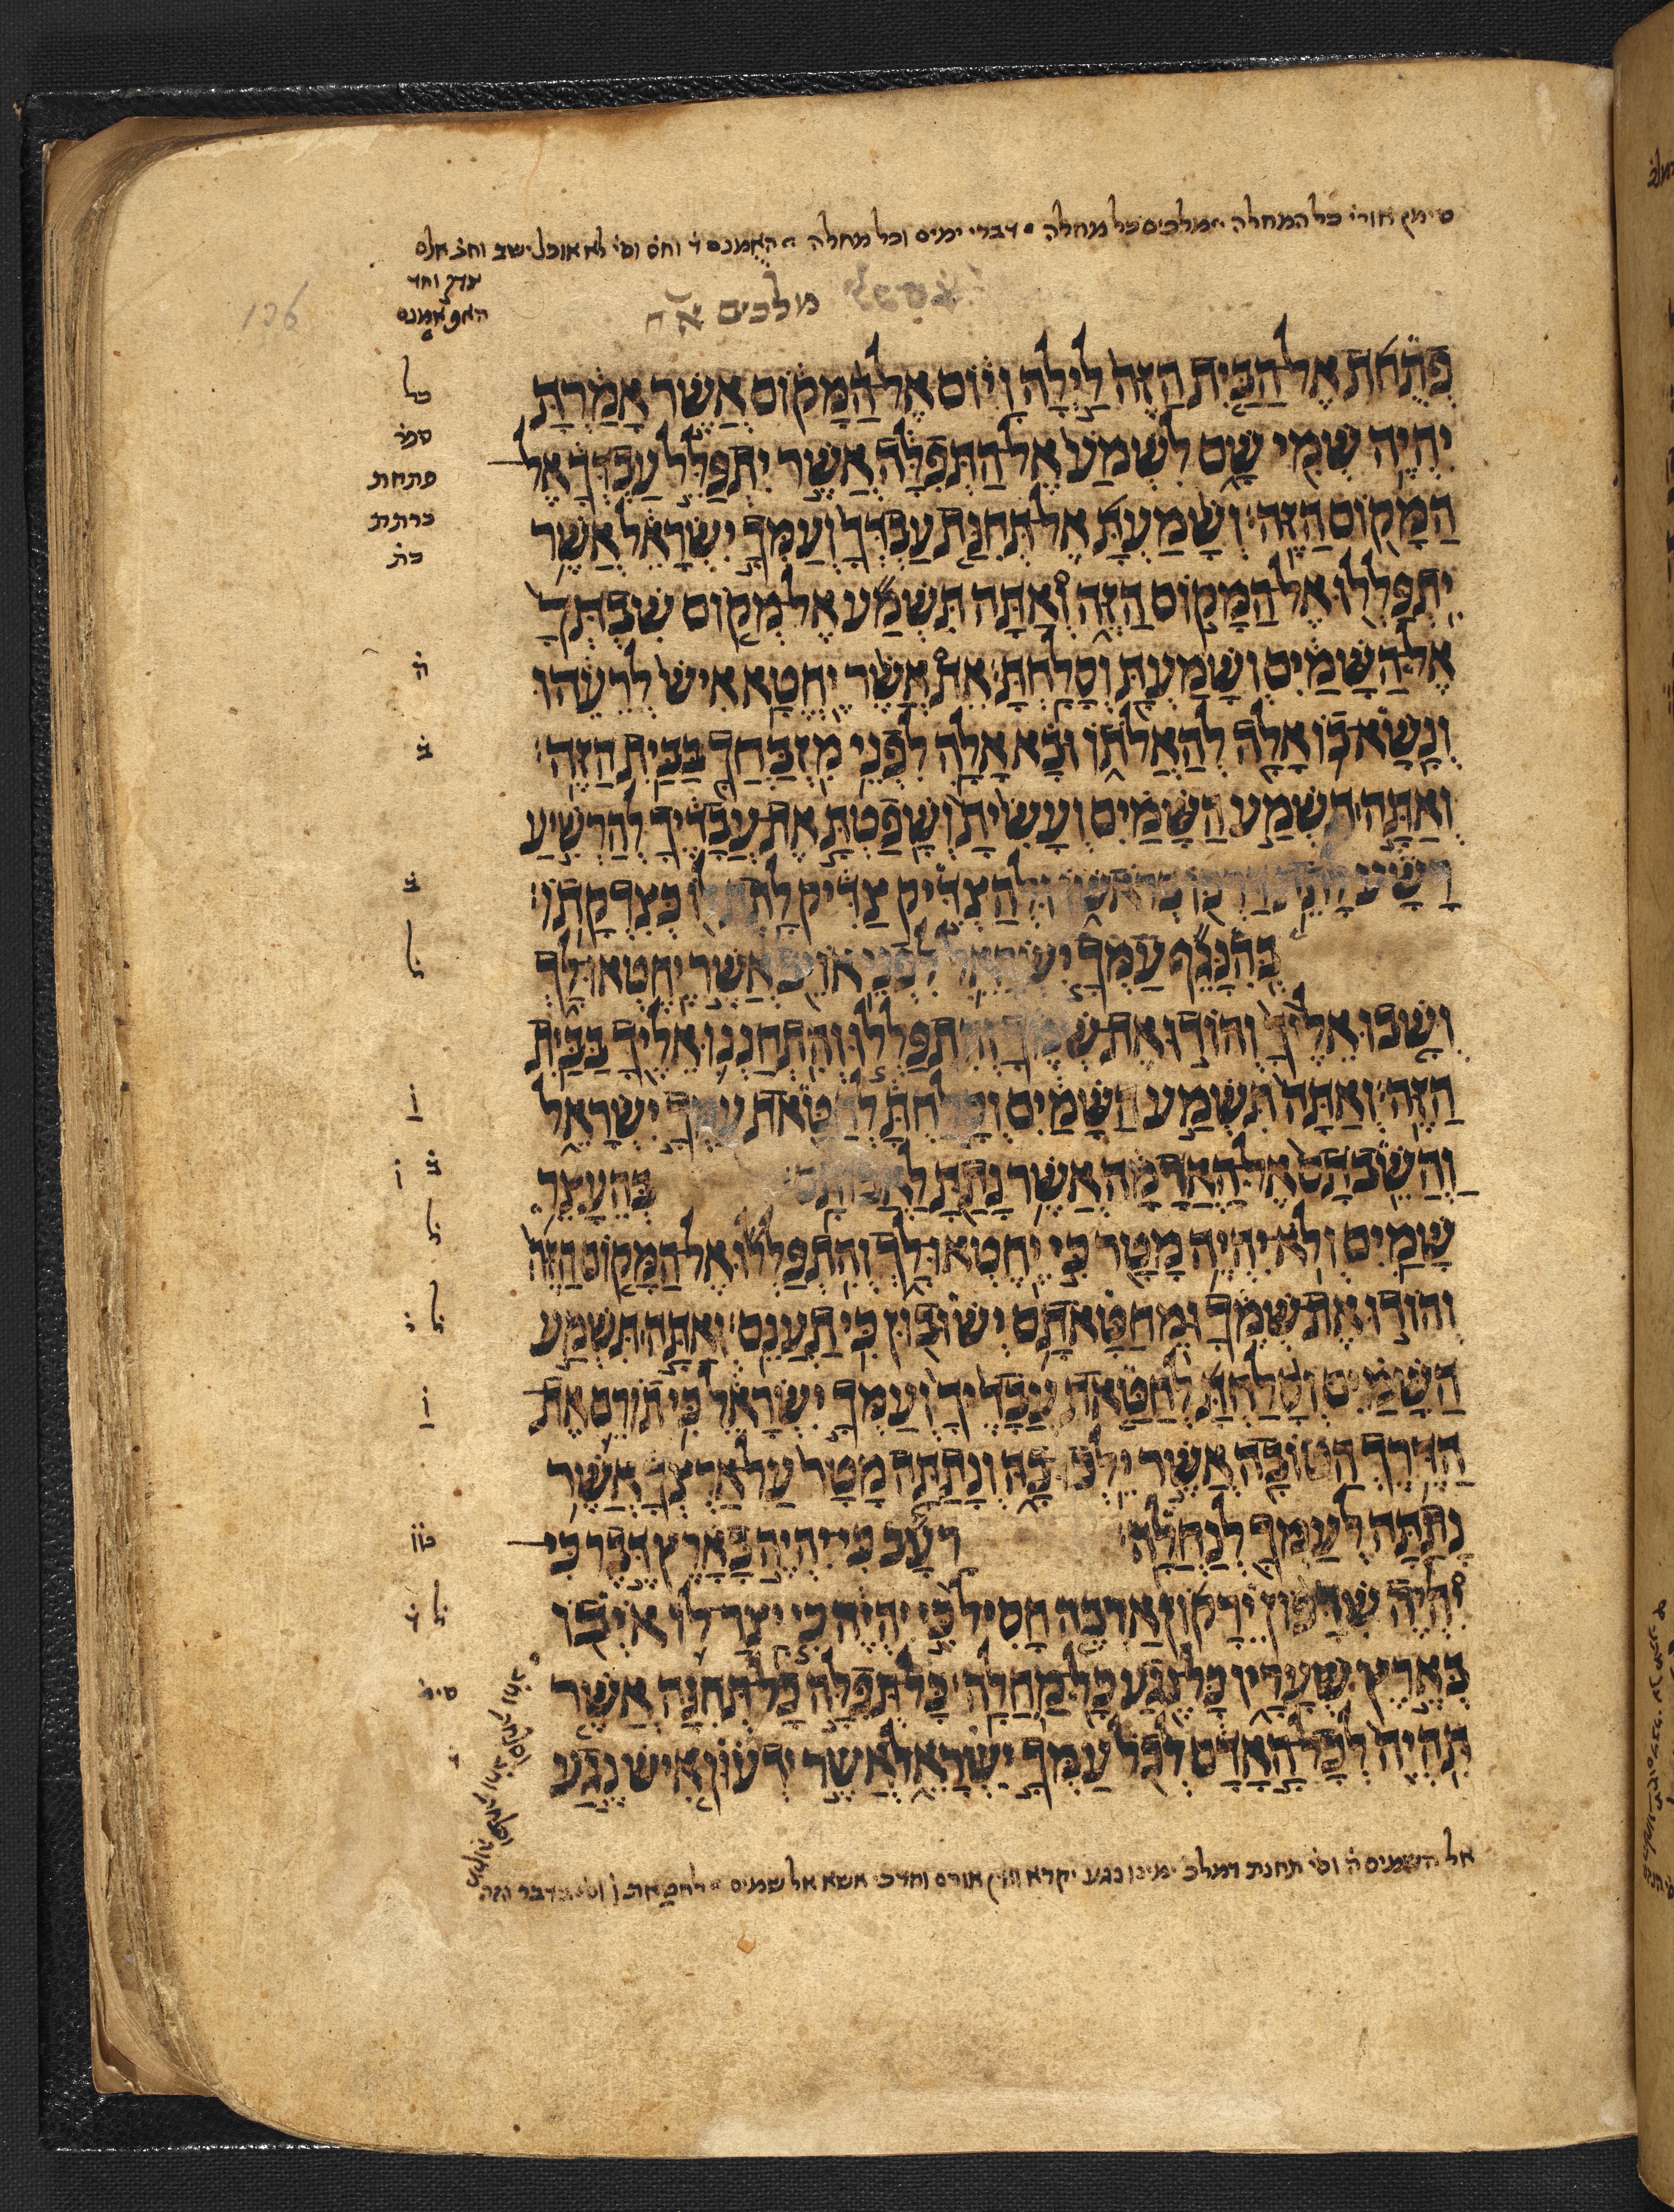 כל המחלה מלכים כל מחלה דברי ימים וכל מחלה האמנם
צדק וחד
האף אמנם
מלכים א ח
136
פתחת אל הבית הזה לילה ויום אל המקום אשר אמרת
יהיה שמי שם לשמע אל התפלה אשר יתפלל עבדך אל
המקום הזה׃ ושמעת אל תחנת עבדך ועמך ישראל אשר
יתפללו אל המקום הזה ואתה תשמע אל מקום שבתך
אל השמים ושמעת וסלחת׃ את אשר יחטא איש לרעהו
ונשא בו אלה להאלתו ובא אלה לפני מזבחך בבית הזה׃
ואתה תשמע השמים ועשית ושפטת את עבדיך להרשיע
רשע לתת דרכו בראשו ולהצדיק צדיק לתת לו כצדקתו׃
בהנגף עמך ישראל לפני אויב אשר יחטאו לך
ושבו אליך והודו את שמך והתפללו והתחננו אליך בבית
הזה׃ ואתה תשמע השמים וסלחת לחטאת עמך ישראל
והשבתם אל האדמה אשר נתת לאבותם׃ בהעצר
שמים ולא יהיה מטר כי יחטאו לך והתפללו אל המקום הזה
והודו את שמך ומחטאתם ישובון כי תענם׃ ואתה תשמע
השמים וסלחת לחטאת עבדיך ועמך ישראל כי תורם את
הדרך הטובה אשר ילכו בה ונתתה מטר על ארצך אשר
נתתה לעמך לנחלה׃ רעב כי יהיה בארץ דבר כי
יהיה שדפון ירקון ארבה חסיל כי יהיה כי יצר לו איבו
בארץ שעריו כל נגע כל מחלה׃ כל תפלה כל תחנה אשר
תהיה לכל האדם לכל עמך ישראל אשר ידעון איש נגע
כל
ספר
פתחת
כרתת
כת
ה
ב
ב
ל
ו
ב ו
ל
ל
ו
ל
אל השמים ה וסי תחנת דמלכ ימינו נגע יקרא אורם וחדכי אשא אל שמים לחטאת ו וסי בדבר הזה